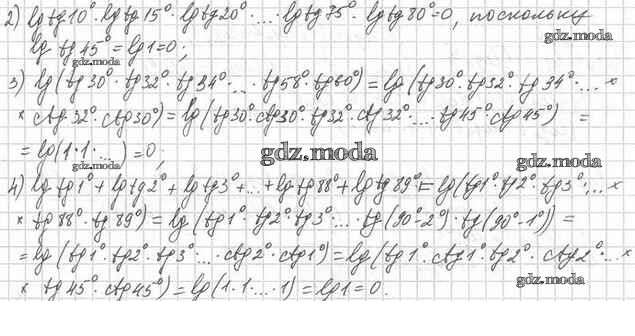 2) lg tg 10° · lg tg 15° · lg tg 20° · ... · lg tg 75° · lg tg 80° = 0, поскольку
gdz.moda
lg tg 45° = lg 1 = 0;
gdz.moda
3) lg (tg 30° · tg 32° · tg 34° · ... · tg 58° · tg 60°) = lg (tg 30° · tg 32° · tg 34° · ... ×
× ctg 32° · ctg 30°) = lg (tg 30° · ctg 30° · tg 32° · ctg 32° · ... · tg 45° · ctg 45°) =
= lg (1 · 1 · ...) = 0;
gdz.moda
gdz.moda
gdz.moda
4) lg tg 1° + lg tg 2° + lg tg 3° + ... + lg tg 88° + lg tg 89° = lg (tg 1° · tg 2° · tg 3° · ... ×
× tg 88° · tg 89°) = lg (tg 1° · tg 2° · tg 3° · ... · tg (90° - 2°) · tg (90° - 1°)) =
= lg (tg 1° · tg 2° · tg 3° · ... · ctg 2° · ctg 1°) = lg (tg 1° · ctg 1° · tg 2° · ctg 2° · ... ×
× tg 45° · ctg 45°) = lg (1 · 1 · ... · 1) = lg 1 = 0.
gdz.moda